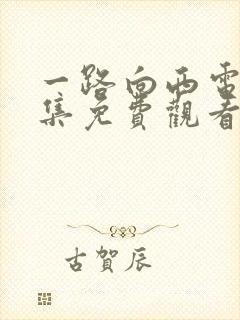 一路向西電
集免費觀看
古賀辰